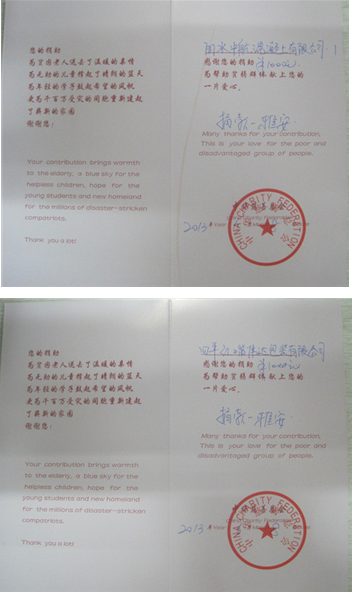 您的捐助
为贫困老人送去了温暖的亲情
为无助的儿童撑起了晴朗的蓝天
为年轻的学子鼓起希望的风帆
更为千百万受灾的同胞重新建起
了崭新的家园
谢谢您！
Your contribution brings warmth
to the elderly, a blue sky for the
helpless children, hope for the
young students and new homeland
for the millions of disaster-stricken
compatriots.
Thank you a lot!
混凝土有限公司
感谢您的捐助 1000元
为帮助贫弱群体献上您的
一片爱心。
雅安
Many thanks for your contribution,
This is your love for the poor and
disadvantaged group of people.
CHINA CHARITY FEDERATION
2013 年 Year
您的捐助
为贫困老人送去了温暖的亲情
为无助的儿童撑起了晴朗的蓝天
为年轻的学子鼓起希望的风帆
更为千百万受灾的同胞重新建起
了崭新的家园
谢谢您！
Your contribution brings warmth
to the elderly, a blue sky for the
helpless children, hope for the
young students and new homeland
for the millions of disaster-stricken
compatriots.
Thank you a lot!
包装有限公司
感谢您的捐助 1000元
为帮助贫弱群体献上您的
一片爱心。
雅安
Many thanks for your contribution,
This is your love for the poor and
disadvantaged group of people.
CHINA CHARITY FEDERATION
2013 年 Year